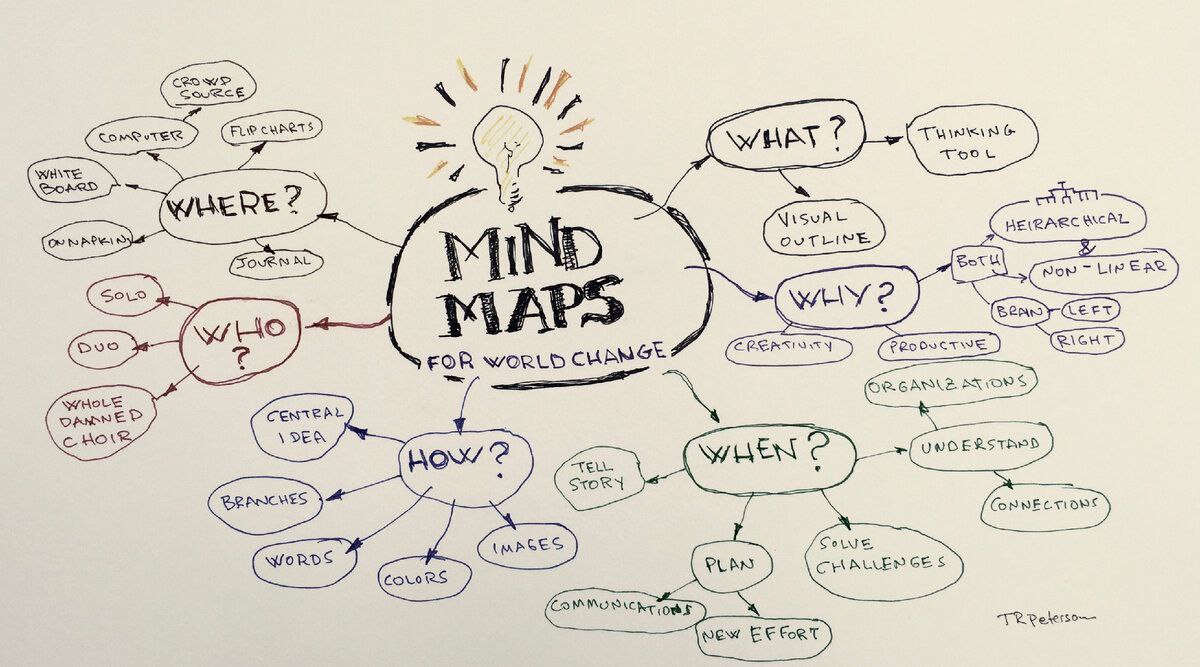 MIND
MAPS
FOR WORLD CHANGE
WHAT?
THINKING
TOOL
VISUAL
OUTLINE
WHY?
CREATIVITY
PRODUCTIVE
BOTH
HEIRARCHICAL
&
NON-LINEAR
BRAIN
LEFT
RIGHT
WHEN?
UNDERSTAND
ORGANIZATIONS
CONNECTIONS
SOLVE
CHALLENGES
PLAN
COMMUNICATIONS
NEW EFFORT
TELL
STORY
HOW?
IMAGES
COLORS
WORDS
BRANCHES
CENTRAL
IDEA
WHO
?
SOLO
DUO
WHOLE
DAMNED
CHOIR
WHERE?
JOURNAL
ON NAPKIN
WHITE
BOARD
COMPUTER
CROWD
SOURCE
FLIPCHARTS
TRPeterson